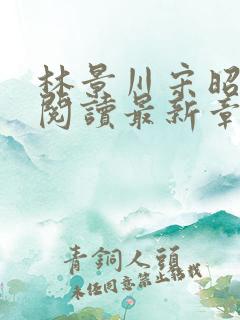 林景川宋昭
閱讀最新章
青銅人頭
未任同意禁止轉載